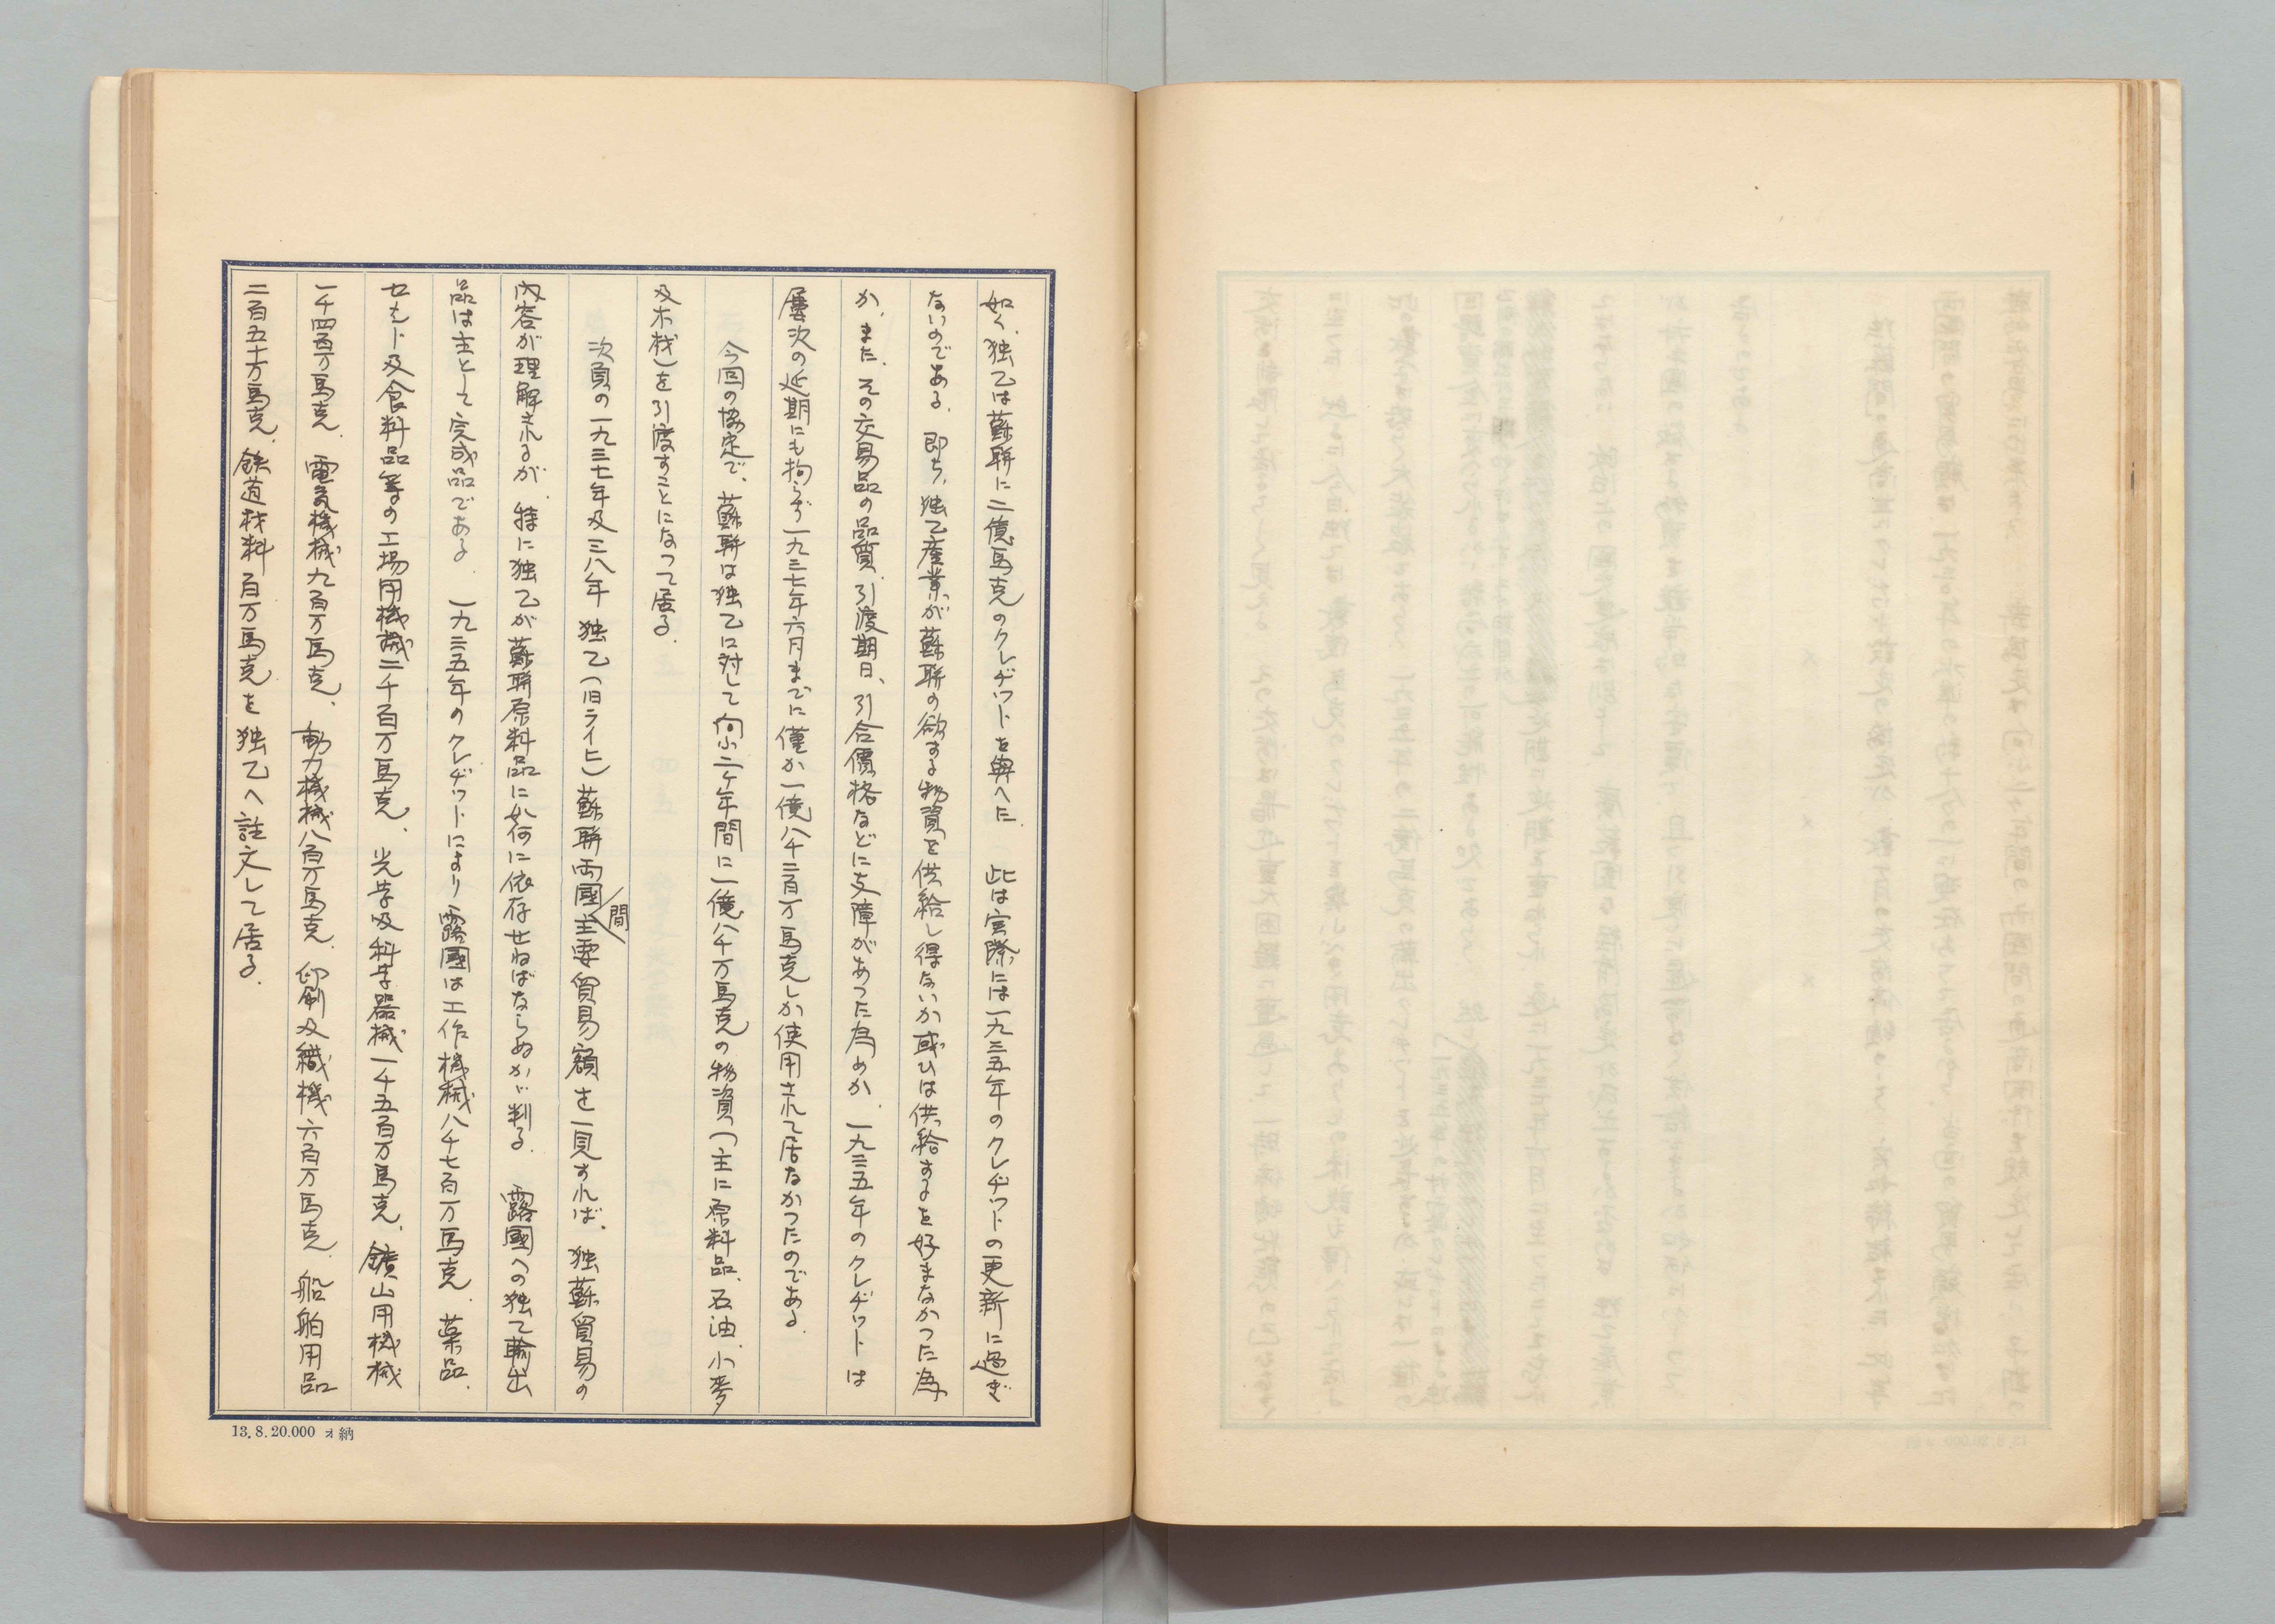 如く、独乙は蘇聯に二億馬克のクレヂットを與へた。此は実際には一九三五年のクレヂットの更新に過ぎ
ないのである。即ち、独乙産業が蘇聯の欲する物資を供給し得ないか或ひは供給するを好まなかつた為
か、また、その交易品の品質、引渡期日、引合價格などに支障があつた為めか、一九三五年のクレヂットは
屡次の延期にも拘らず一九三七年六月までに僅か一億八千二百万馬克しか使用されて居なかつたのである。
今回の協定で、蘇聯は独乙に対して向ふ二ケ年間に一億八千万馬克の物資（主に原料品、石油、小麥
及木材）を引渡すことになつて居る。
次頁の一九三七年及三八年独乙（旧ライヒ）蘇聯両國間主要貿易額を一見すれば、独蘇貿易の
内容が理解されるが、特に独乙が蘇聯原料品に如何に依存せねばならぬかゞ判る。露國への独乙輸出
品は主として完成品である。一九三五年のクレヂットにより露國は工作機械八千七百万馬克、薬品、
セメント及食料品等の工場用機械二千百万馬克、光学及科学器械一千五百万馬克、鑛山用機械
一千四百万馬克、電気機械九百万馬克、動力機械八百万馬克、印刷及織機六百万馬克、船舶用品
二百五十万馬克、鉄道材料百万馬克を独乙へ註文して居る。
13.8.20.000 ォ納